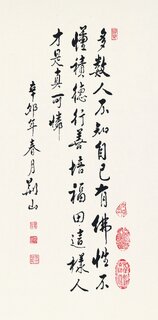 多數人不知自己有佛性不
懂積德行善培福田這樣人
才是真可憐
辛卯年春月 荊山